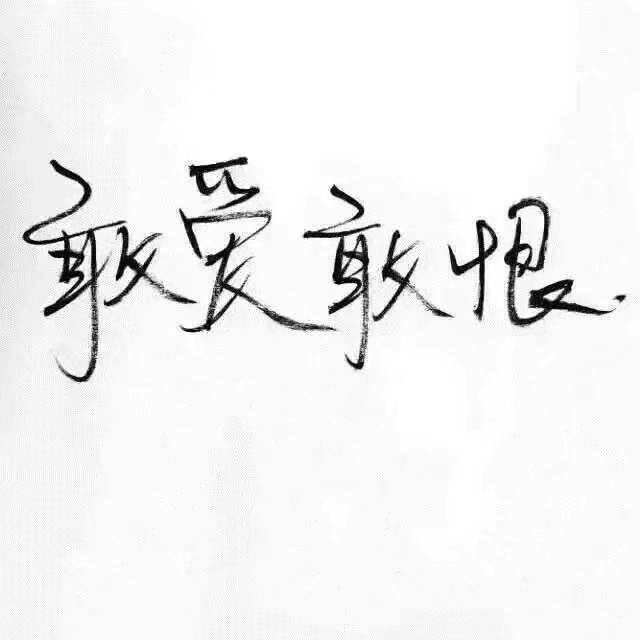 敢爱敢恨.